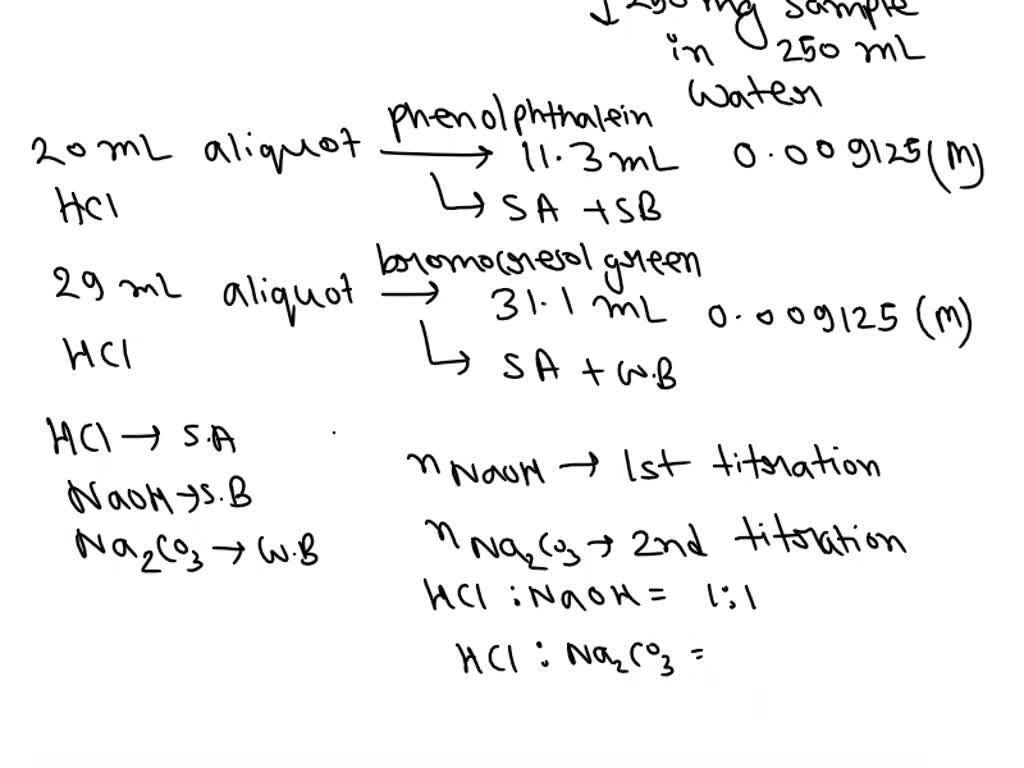 ↓ 250 mg sample
in 250 mL
water
20 mL aliquot phenolphthalein → 11.3 mL 0.009125 (M)
HCl ↳ SA + SB
29 mL aliquot bromocresol green → 31.1 mL 0.009125 (M)
HCl ↳ SA + W.B
HCl → S.A
NaOH → S.B
Na2CO3 → W.B
n NaOH → 1st titration
n Na2CO3 → 2nd titration
HCl : NaOH = 1:1
HCl : Na2CO3 =